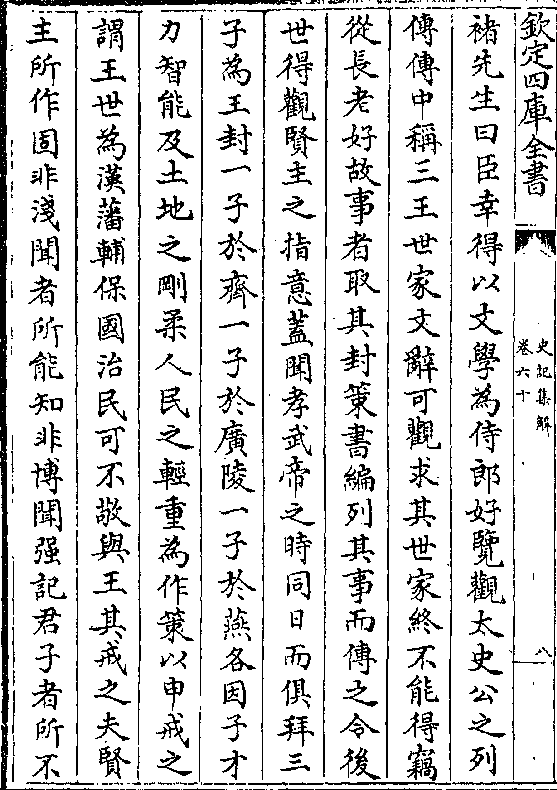 欽定四庫全書
史記集解
卷六十
八
褚先生曰臣幸得以文學為侍郎好覽觀太史公之列
傳傳中稱三王世家文辭可觀求其世家終不能得竊
從長老好故事者取其封策書編列其事而傳之令後
世得觀賢主之指意蓋聞孝武帝之時同日而俱拜三
子為王封一子於齊一子於廣陵一子於燕各因子才
力智能及土地之剛柔人民之輕重為作策以申戒之
謂王世為漢藩輔保國治民可不敬與王其戒之夫賢
主所作固非淺聞者所能知非博聞强記君子者所不